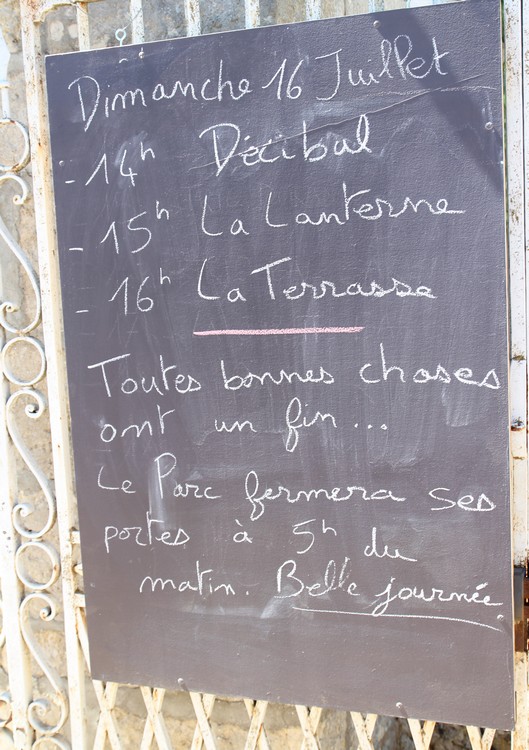 Dimanche 16 Juillet
- 14h Décibal
- 15h La Lanterne
- 16h La Terrasse
Toutes bonnes choses
ont un fin...
Le Parc fermera ses
portes à 5h du
matin. Belle journée